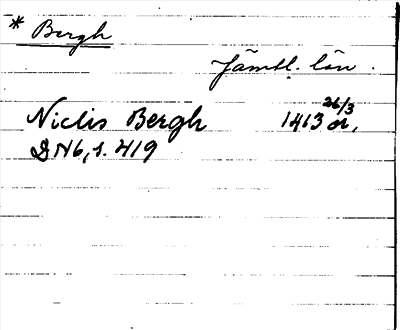 * Bergh
Jämtl. län.
Niclis Bergh 1413 26/3 or,
DN6, s. 419